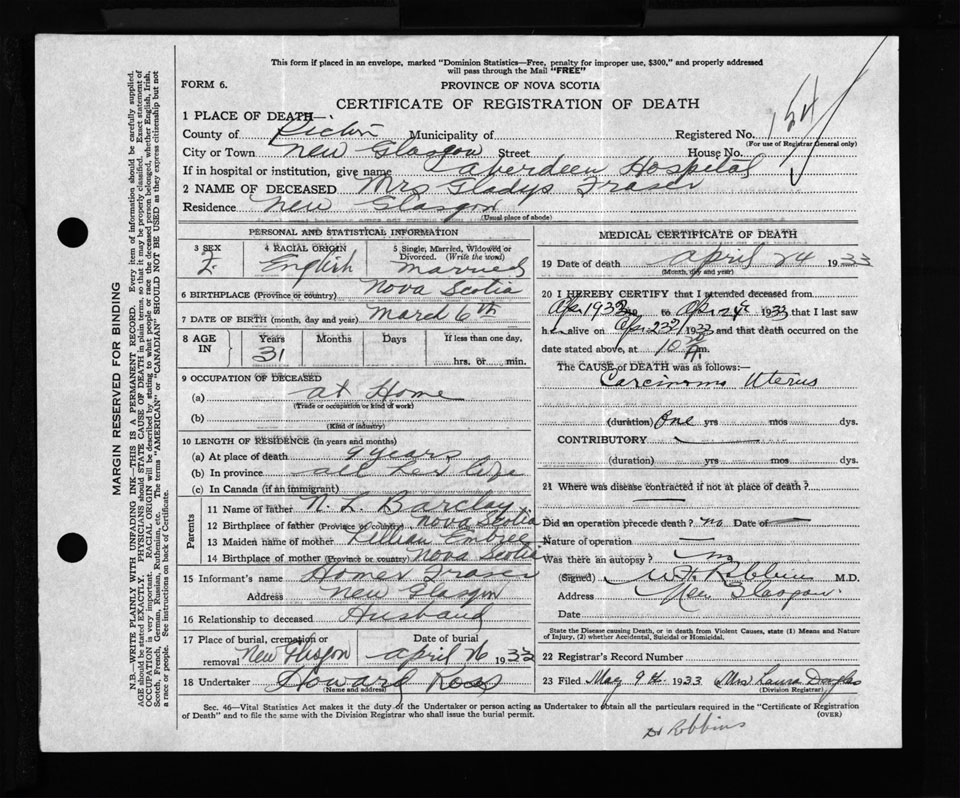 This form if placed in an envelope, marked "Dominion Statistics—Free, penalty for improper use, $300," and properly addressed
will pass through the Mail "FREE"
FORM 6.
PROVINCE OF NOVA SCOTIA
CERTIFICATE OF REGISTRATION OF DEATH
1 PLACE OF DEATH—
County of Pictou Municipality of Registered No. 154
(For use of Registrar General only)
City or Town New Glasgow Street House No.
If in hospital or institution, give name Aberdeen Hospital
2 NAME OF DECEASED Mrs Gladys Fraser
Residence New Glasgow
(Usual place of abode)
PERSONAL AND STATISTICAL INFORMATION
3 SEX
F.
4 RACIAL ORIGIN
English
5 Single, Married, Widowed or
Divorced. (Write the word)
Married
6 BIRTHPLACE (Province or country) Nova Scotia
7 DATE OF BIRTH (month, day and year) March 6th
8 AGE
IN
Years
31
Months
Days
If less than one day,
hrs. or min.
9 OCCUPATION OF DECEASED
(a) at Home
(Trade or occupation or kind of work)
(b)
(Kind of industry)
10 LENGTH OF RESIDENCE (in years and months)
(a) At place of death 9 years
(b) In province all her life
(c) In Canada (if an immigrant)
Parents
11 Name of father N. L. Barclay
12 Birthplace of father (Province or country) Nova Scotia
13 Maiden name of mother Lillian Embree
14 Birthplace of mother (Province or country) Nova Scotia
15 Informant's name Homer Fraser
Address New Glasgow
16 Relationship to deceased Husband
17 Place of burial, cremation or
removal New Glasgow
Date of burial
April 26 1933
18 Undertaker Howard Ross
(Name and address)
MEDICAL CERTIFICATE OF DEATH
19 Date of death April 24 1933
(Month, day and year)
20 I HEREBY CERTIFY that I attended deceased from
Apr 1933 to Apr 24th 1933 that I last saw
h alive on Apr 23rd 1933 and that death occurred on the
date stated above, at 10 30 A m.
The CAUSE OF DEATH was as follows:—
Carcinoma Uterus
(duration) One yrs mos dys.
CONTRIBUTORY
(duration) yrs mos dys.
21 Where was disease contracted if not at place of death?
Did an operation precede death? no Date of
Nature of operation
Was there an autopsy? no
(Signed) W. H. Robbins M.D.
Address New Glasgow.
Date
State the Disease causing Death, or in death from Violent Causes, state (1) Means and Nature
of Injury, (2) whether Accidental, Suicidal or Homicidal.
22 Registrar's Record Number
23 Filed May 9th 1933 Mrs Laura Douglas
(Division Registrar)
Sec. 46—Vital Statistics Act makes it the duty of the Undertaker or person acting as Undertaker to obtain all the particulars required in the "Certificate of Registration
of Death" and to file the same with the Division Registrar who shall issue the burial permit.
(OVER)
Dr Robbins
MARGIN RESERVED FOR BINDING
N.B.—WRITE PLAINLY WITH UNFADING INK—THIS IS A PERMANENT RECORD. Every item of information should be carefully supplied.
AGE should be stated EXACTLY. PHYSICIANS should STATE CAUSE OF DEATH in plain terms, so that it may be properly classified. Exact statement of
OCCUPATION is very important. RACIAL ORIGIN will be described by stating to what people or race the deceased person belonged, whether English, Irish,
Scotch, French, German, Russian, Ruthenian, etc. The terms "AMERICAN" or "CANADIAN" SHOULD NOT BE USED as they express citizenship but not
a race or people. See instructions on back of Certificate.